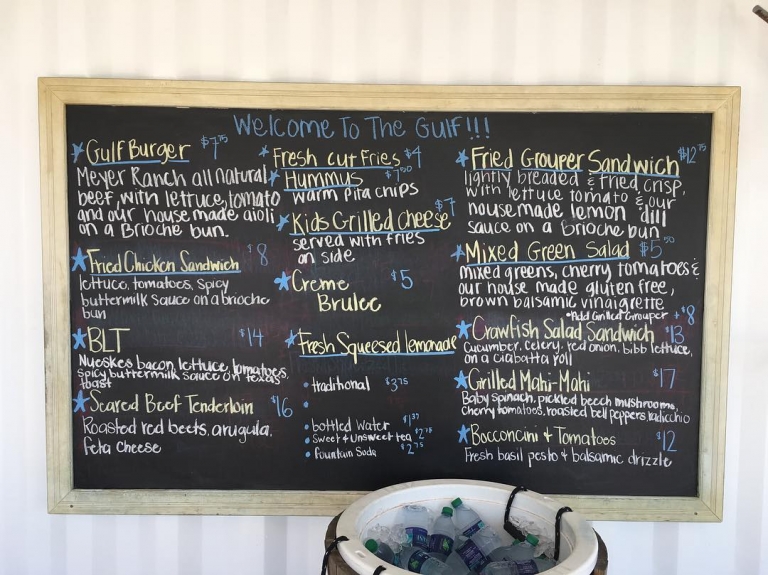 Welcome To The Gulf!!!
Gulf Burger $7.75
Meyer Ranch all natural
beef, with lettuce, tomato
and our house made aioli
on a Brioche bun.
Fried Chicken Sandwich $8
lettuce, tomatoes, spicy
buttermilk sauce on a brioche
bun
BLT $14
Nueskes bacon, lettuce, tomatoes,
spicy buttermilk sauce on texas
toast
Seared Beef Tenderloin $16
Roasted red beets, arugula,
feta cheese
Fresh cut Fries $4
Hummus
warm pita chips
Kids Grilled Cheese $7
served with fries
on side
Creme $5
Brulee
Fresh Squeesed lemonade
traditional $2.75
bottled Water $1.37
Sweet & Unsweet tea $2.75
fountain Soda $2.75
Fried Grouper Sandwich $12.75
lightly breaded & fried crisp,
with lettuce tomato & our
housemade lemon dill
sauce on a Brioche bun
Mixed Green Salad $5.50
mixed greens, cherry tomatoes &
our house made gluten free,
brown balsamic vinaigrette
*Add Grilled Grouper + $8
Crawfish Salad Sandwich $13
Cucumber, celery, red onion, bibb lettuce,
on a ciabatta roll
Grilled Mahi-Mahi $17
Baby spinach, pickled beech mushrooms,
cherry tomatoes, roasted bell peppers, radicchio
Bocconcini & Tomatoes $12
Fresh basil pesto & balsamic drizzle